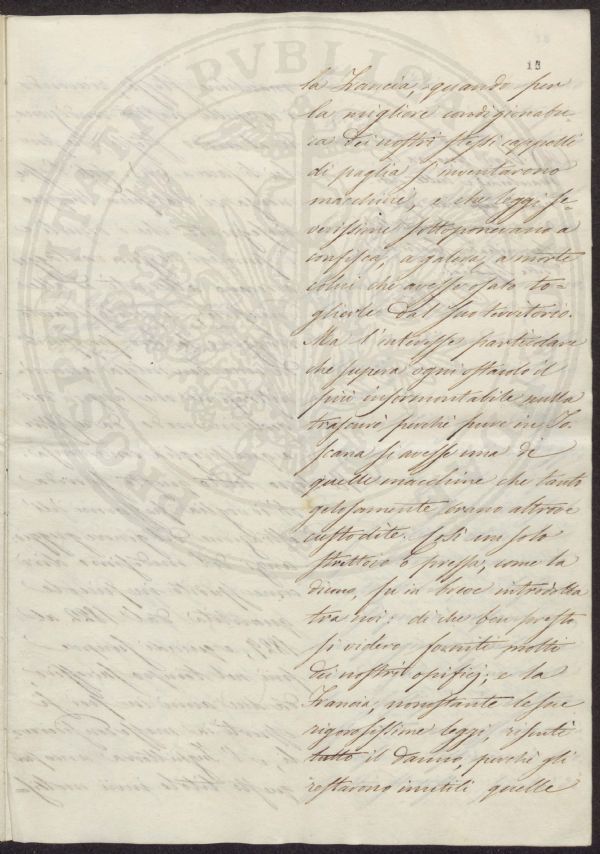 13
la Francia, quando per
la migliore condizionatu-
ra dei nostri stessi cappelli
di paglia s'inventavono
macchine, e che leggi se-
verissime sottoponevano a
confisca, a galera, a morte
colui che avesse osato to-
glierle dal suo territorio.
Ma l'interesse particolare
che supera ogni ostacolo il
più insormontabile nulla
trascurò perchè pure in To-
scana si avesse una di
quelle macchine che tanto
gelosamente erano altrove
custodite. Così un solo
strettoio o pressa, come la
dicono, fu in breve introdotta
tra noi: di che ben presto
si videro forniti molti
dei nostri opifici; e la
Francia, nonostante le sue
rigorosissime leggi, risentì
tutto il danno, perchè gli
restarono inutili quelle
PROSPERITATI PVBLICAE